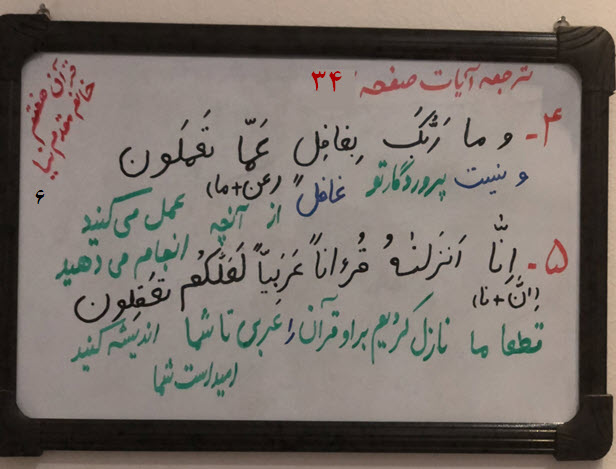 ترجمه آیات صفحه: ۳۴
قرآن هفتم
خانم مقدم نیا
۶
۴- و ما رَبُّکَ بِغافِلٍ عَمّا تَعمَلون
(عن+ما)
و نیست پروردگار تو غافل از آنچه عمل می کنید
انجام می دهید
۵- اِنّا اَنزَلنٰهُ قُرءاناً عَرَبیّاً لَعَلَّکُم تَعقِلون
(اِنَّ+نا)
قطعا ما نازل کردیم براو قرآن را عربی تا شما اندیشه کنید
امیداست شما